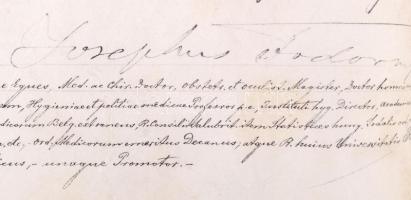 Josephus Fodor
e Eques, Med. ac Chir. Doctor, obstetr. et oculist. Magister, Doctor honor
am, Hygieniae et politiae medicae Professor p. e., Instituti hyg. Director, academ
dicorum Belg. extraneus, R. Consilii salubrit. item Statistices hung. Sodalis
, etc., - ord. Medicorum emeritus Decanus; atque R. huius Universitatis
icus, - unaque Promotor. -